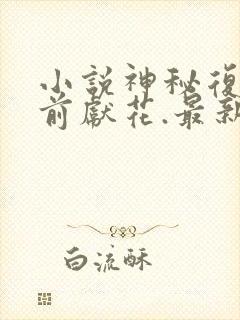 小說神秘復
前獻花.最新
白流酥